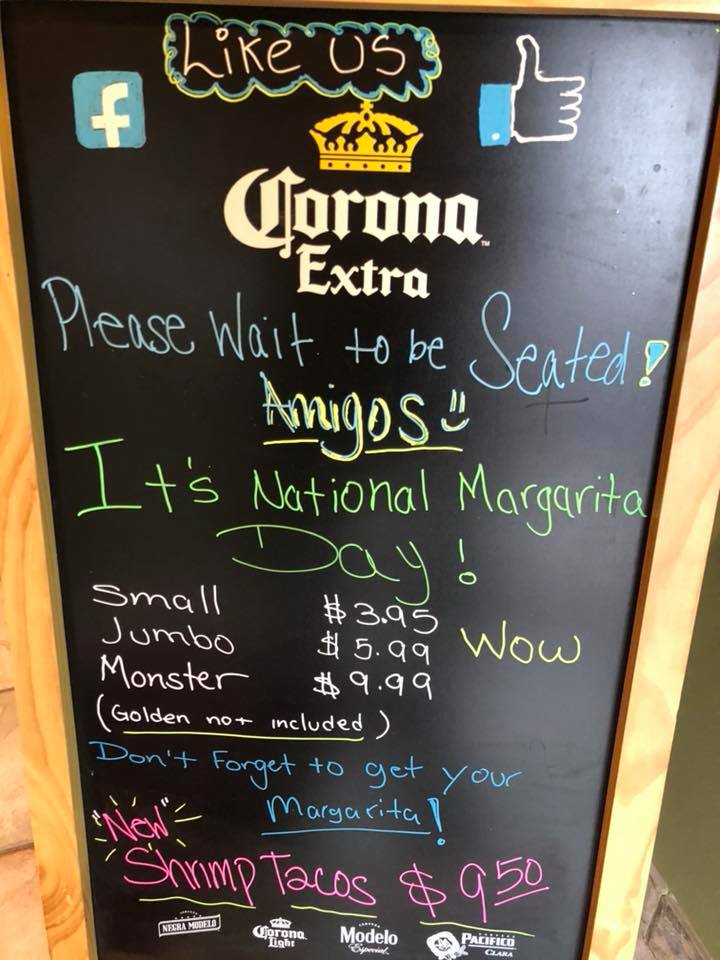 Like us
f
Corona
Extra
Please Wait to be Seated!
Amigos
It's National Margarita
Day!
Small $3.95
Jumbo $5.99 WOW
Monster $9.99
(Golden not included)
Don't Forget to get your
Margarita!
"New"
Shrimp Tacos $9.50
NEGRA MODELO
Corona Light
Modelo Especial
PACIFICO CLARA